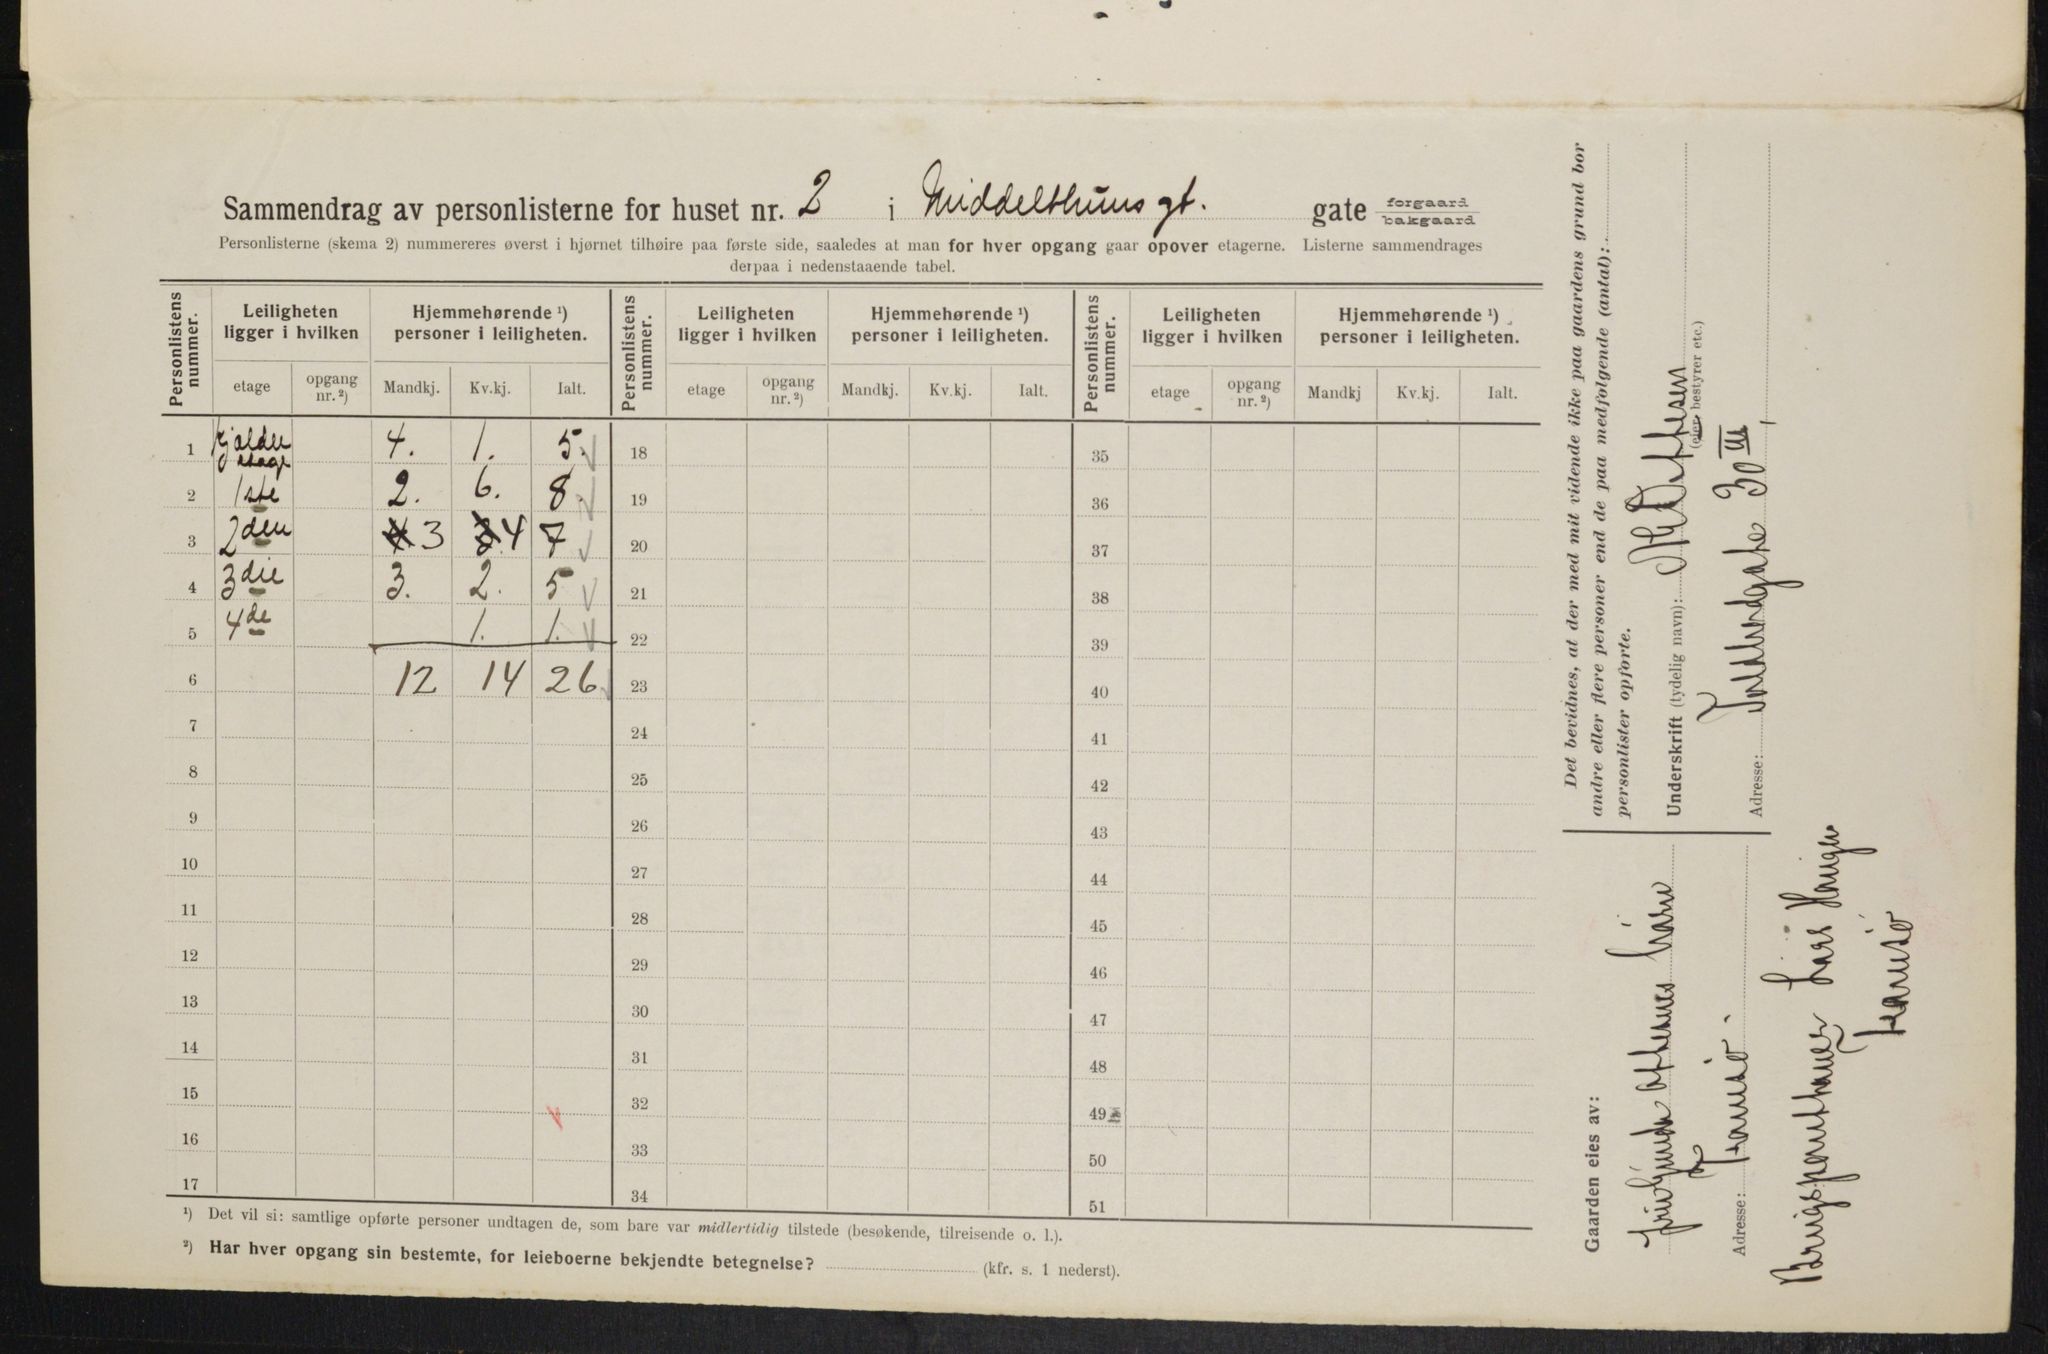 Sammendrag av personlisterne for huset nr. 2 i Middelthuns gt. gate forgaard bakgaard
Personlisterne (skema 2) nummereres øverst i hjørnet tilhøire paa første side, saaledes at man for hver opgang gaar opover etagerne. Listerne sammendrages
derpaa i nedenstaaende tabel.
Personlistens nummer. Leiligheten ligger i hvilken Hjemmehørende ¹) personer i leiligheten. Personlistens nummer. Leiligheten ligger i hvilken Hjemmehørende ¹) personer i leiligheten. Personlistens nummer. Leiligheten ligger i hvilken Hjemmehørende ¹) personer i leiligheten.
etage opgang nr. ²) Mandkj. Kv.kj. Ialt. etage opgang nr. ²) Mandkj. Kv.kj. Ialt. etage opgang nr. ²) Mandkj Kv.kj. Ialt.
1 kjælder etage 4. 1. 5. 18 35
2 1ste 2. 6. 8. 19 36
3 2den 3 4 7 20 37
4 3die 3. 2. 5 21 38
5 4de 1. 1. 22 39
6 12 14 26 23 40
7 24 41
8 25 42
9 26 43
10 27 44
11 28 45
12 29 46
13 30 47
14 31 48
15 32 49
16 33 50
17 34 51
¹) Det vil si: samtlige opførte personer undtagen de, som bare var midlertidig tilstede (besøkende, tilreisende o. l.).
²) Har hver opgang sin bestemte, for leieboerne bekjendte betegnelse? (kfr. s. 1 nederst).
Det bevidnes, at der med mit vidende ikke paa gaardens grund bor
andre eller flere personer end de paa medfølgende (antal):
personlister opførte.
Underskrift (tydelig navn):
(eier, bestyrer etc.)
Adresse: 30 III
Gaarden eies av:
Adresse: Tromsø.
Lars Hougen
Tromsø